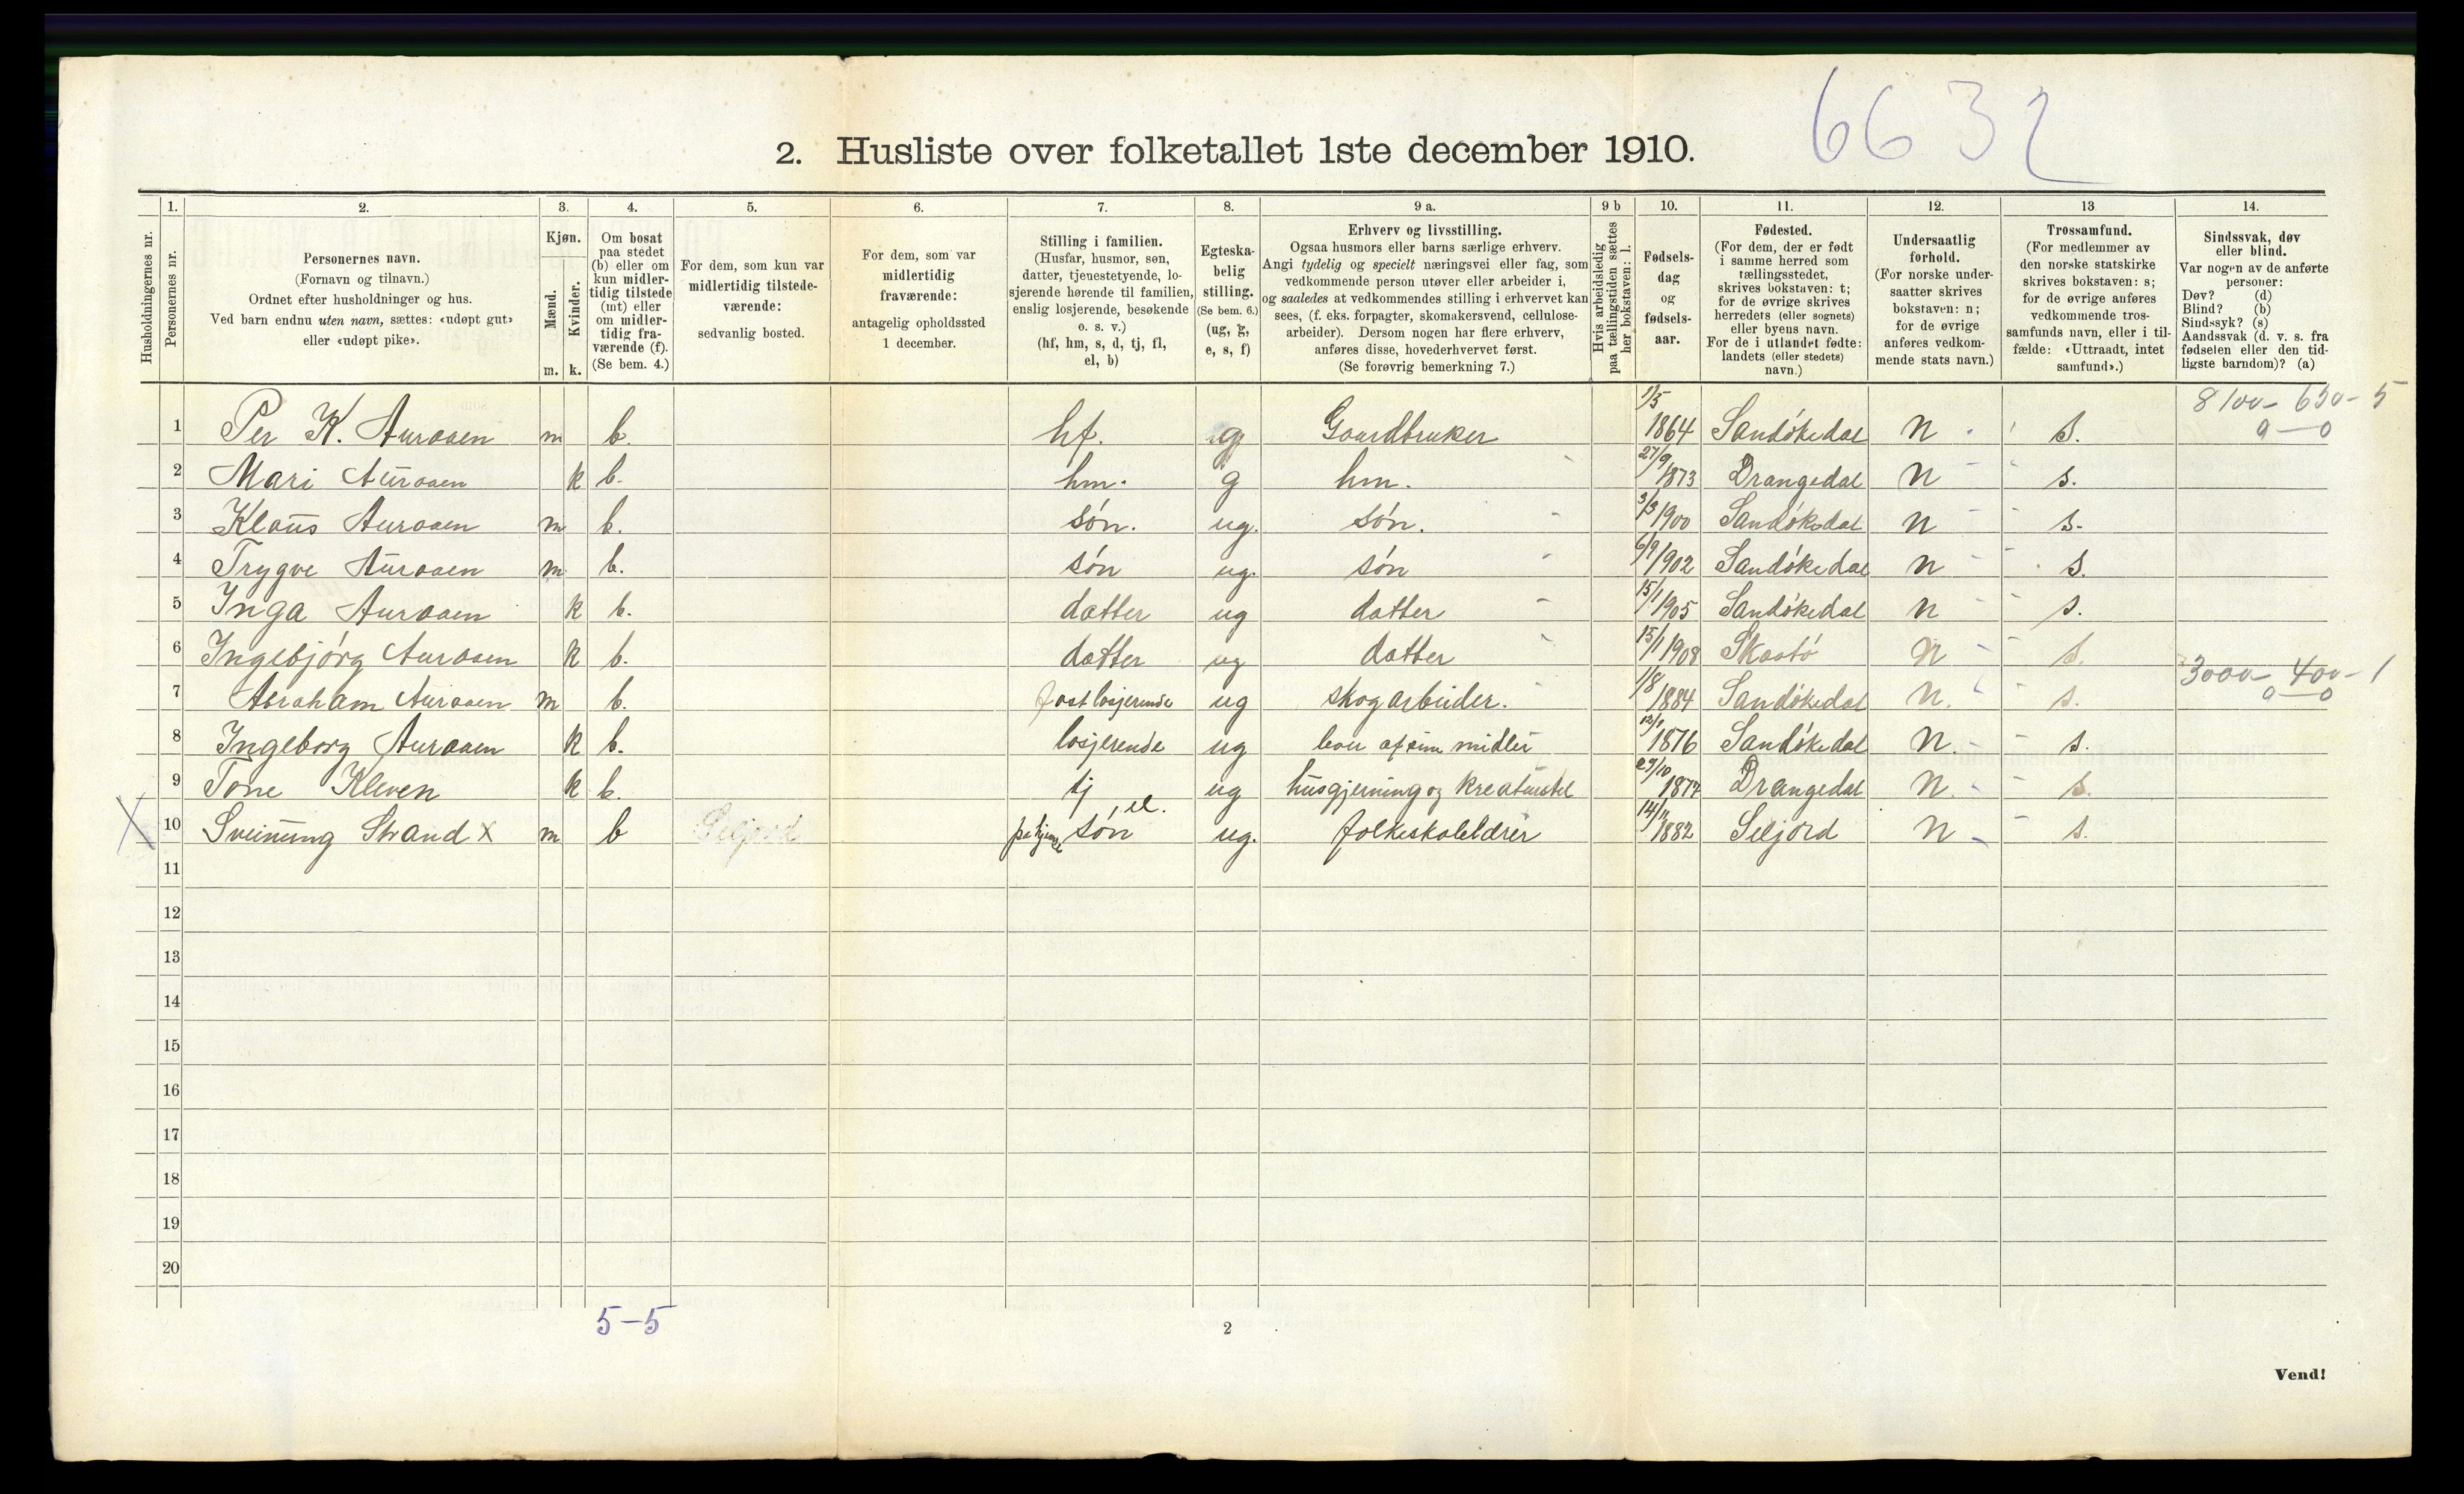 6632
2. Husliste over folketallet 1ste december 1910.
1. 2. 3. 4. 5. 6. 7. 8. 9 a. 9 b 10. 11. 12. 13 14.
Husholdningernes nr.
Personernes nr.
Personernes navn.
(Fornavn og tilnavn.)
Ordnet efter husholdninger og hus.
Ved barn endnu uten navn, sættes: «udøpt gut»
eller «udøpt pike».
Kjøn.
Mænd.
Kvinder.
m. k.
Om bosat
paa stedet
(b) eller om
kun midler-
tidig tilstede
(mt) eller
om midler-
tidig fra-
værende (f).
(Se bem. 4.)
For dem, som kun var
midlertidig tilstede-
værende:
sedvanlig bosted.
For dem, som var
midlertidig
fraværende:
antagelig opholdssted
1 december.
Stilling i familien.
(Husfar, husmor, søn,
datter, tjenestetyende, lo-
sjerende hørende til familien,
enslig losjerende, besøkende
o. s. v.)
(hf, hm, s, d, tj, fl,
el, b)
Egteska-
belig
stilling.
(Se bem. 6.)
(ug, g,
e, s, f)
Erhverv og livsstilling.
Ogsaa husmors eller barns særlige erhverv.
Angi tydelig og specielt næringsvei eller fag, som
vedkommende person utøver eller arbeider i,
og saaledes at vedkommendes stilling i erhvervet kan
sees, (f. eks. forpagter, skomakersvend, cellulose-
arbeider). Dersom nogen har flere erhverv,
anføres disse, hovederhvervet først.
(Se forøvrig bemerkning 7.)
Hvis arbeidsledig
paa tællingstiden sættes
her bokstaven: l.
Fødsels-
dag
og
fødsels-
aar.
Fødested.
(For dem, der er født
i samme herred som
tællingsstedet,
skrives bokstaven: t;
for de øvrige skrives
herredets (eller sognets)
eller byens navn.
For de i utlandet fødte:
landets (eller stedets)
navn.)
Undersaatlig
forhold.
(For norske under-
saatter skrives
bokstaven: n;
for de øvrige
anføres vedkom-
mende stats navn.)
Trossamfund.
(For medlemmer av
den norske statskirke
skrives bokstaven: s;
for de øvrige anføres
vedkommende tros-
samfunds navn, eller i til-
fælde: «Uttraadt, intet
samfund».)
Sindssvak, døv
eller blind.
Var nogen av de anførte
personer:
Døv? (d)
Blind? (b)
Sindssyk? (s)
Aandssvak (d. v. s. fra
fødselen eller den tid-
ligste barndom)? (a)
8100 - 650 - 5
0 - 0
1 Per K. Auraaen m b. hf. g Gaardbruker 1/5 1864 Sandøkedal n s.
2 Mari Auraaen k b. hm. g hm. 27/9 1873 Drangedal n s.
3 Klaus Auraaen m b. søn. ug. søn. 3/3 1900 Sandøkedal n s.
4 Trygve Auraaen m b. søn ug. søn 6/9 1902 Sandøkedal n s.
5 Inga Auraaen k b. datter ug datter 15/1 1905 Sandøkedal n s.
6 Ingebjørg Auraaen k b. datter ug datter 15/1 1908 Skaatø n s.
3000 - 400 - 1
0 - 0
7 Abraham Auraaen m b. fast losjerende ug skogarbeider. 1/8 1884 Sandøkedal n. s.
8 Ingeborg Auraaen k b. losjerende ug lever af sine midler 1876 Sandøkedal n. s.
9 Tone Kleven k b. tj ug husgjerning og kreaturstel 29/10 1874 Drangedal n. s.
X 10 Sveinung Strand X m b Seljord søn , el. ug. folkeskolelærer 1882 Seljord n s.
11
12
13
14
15
16
17
18
19
20
5-5
2
Vend!